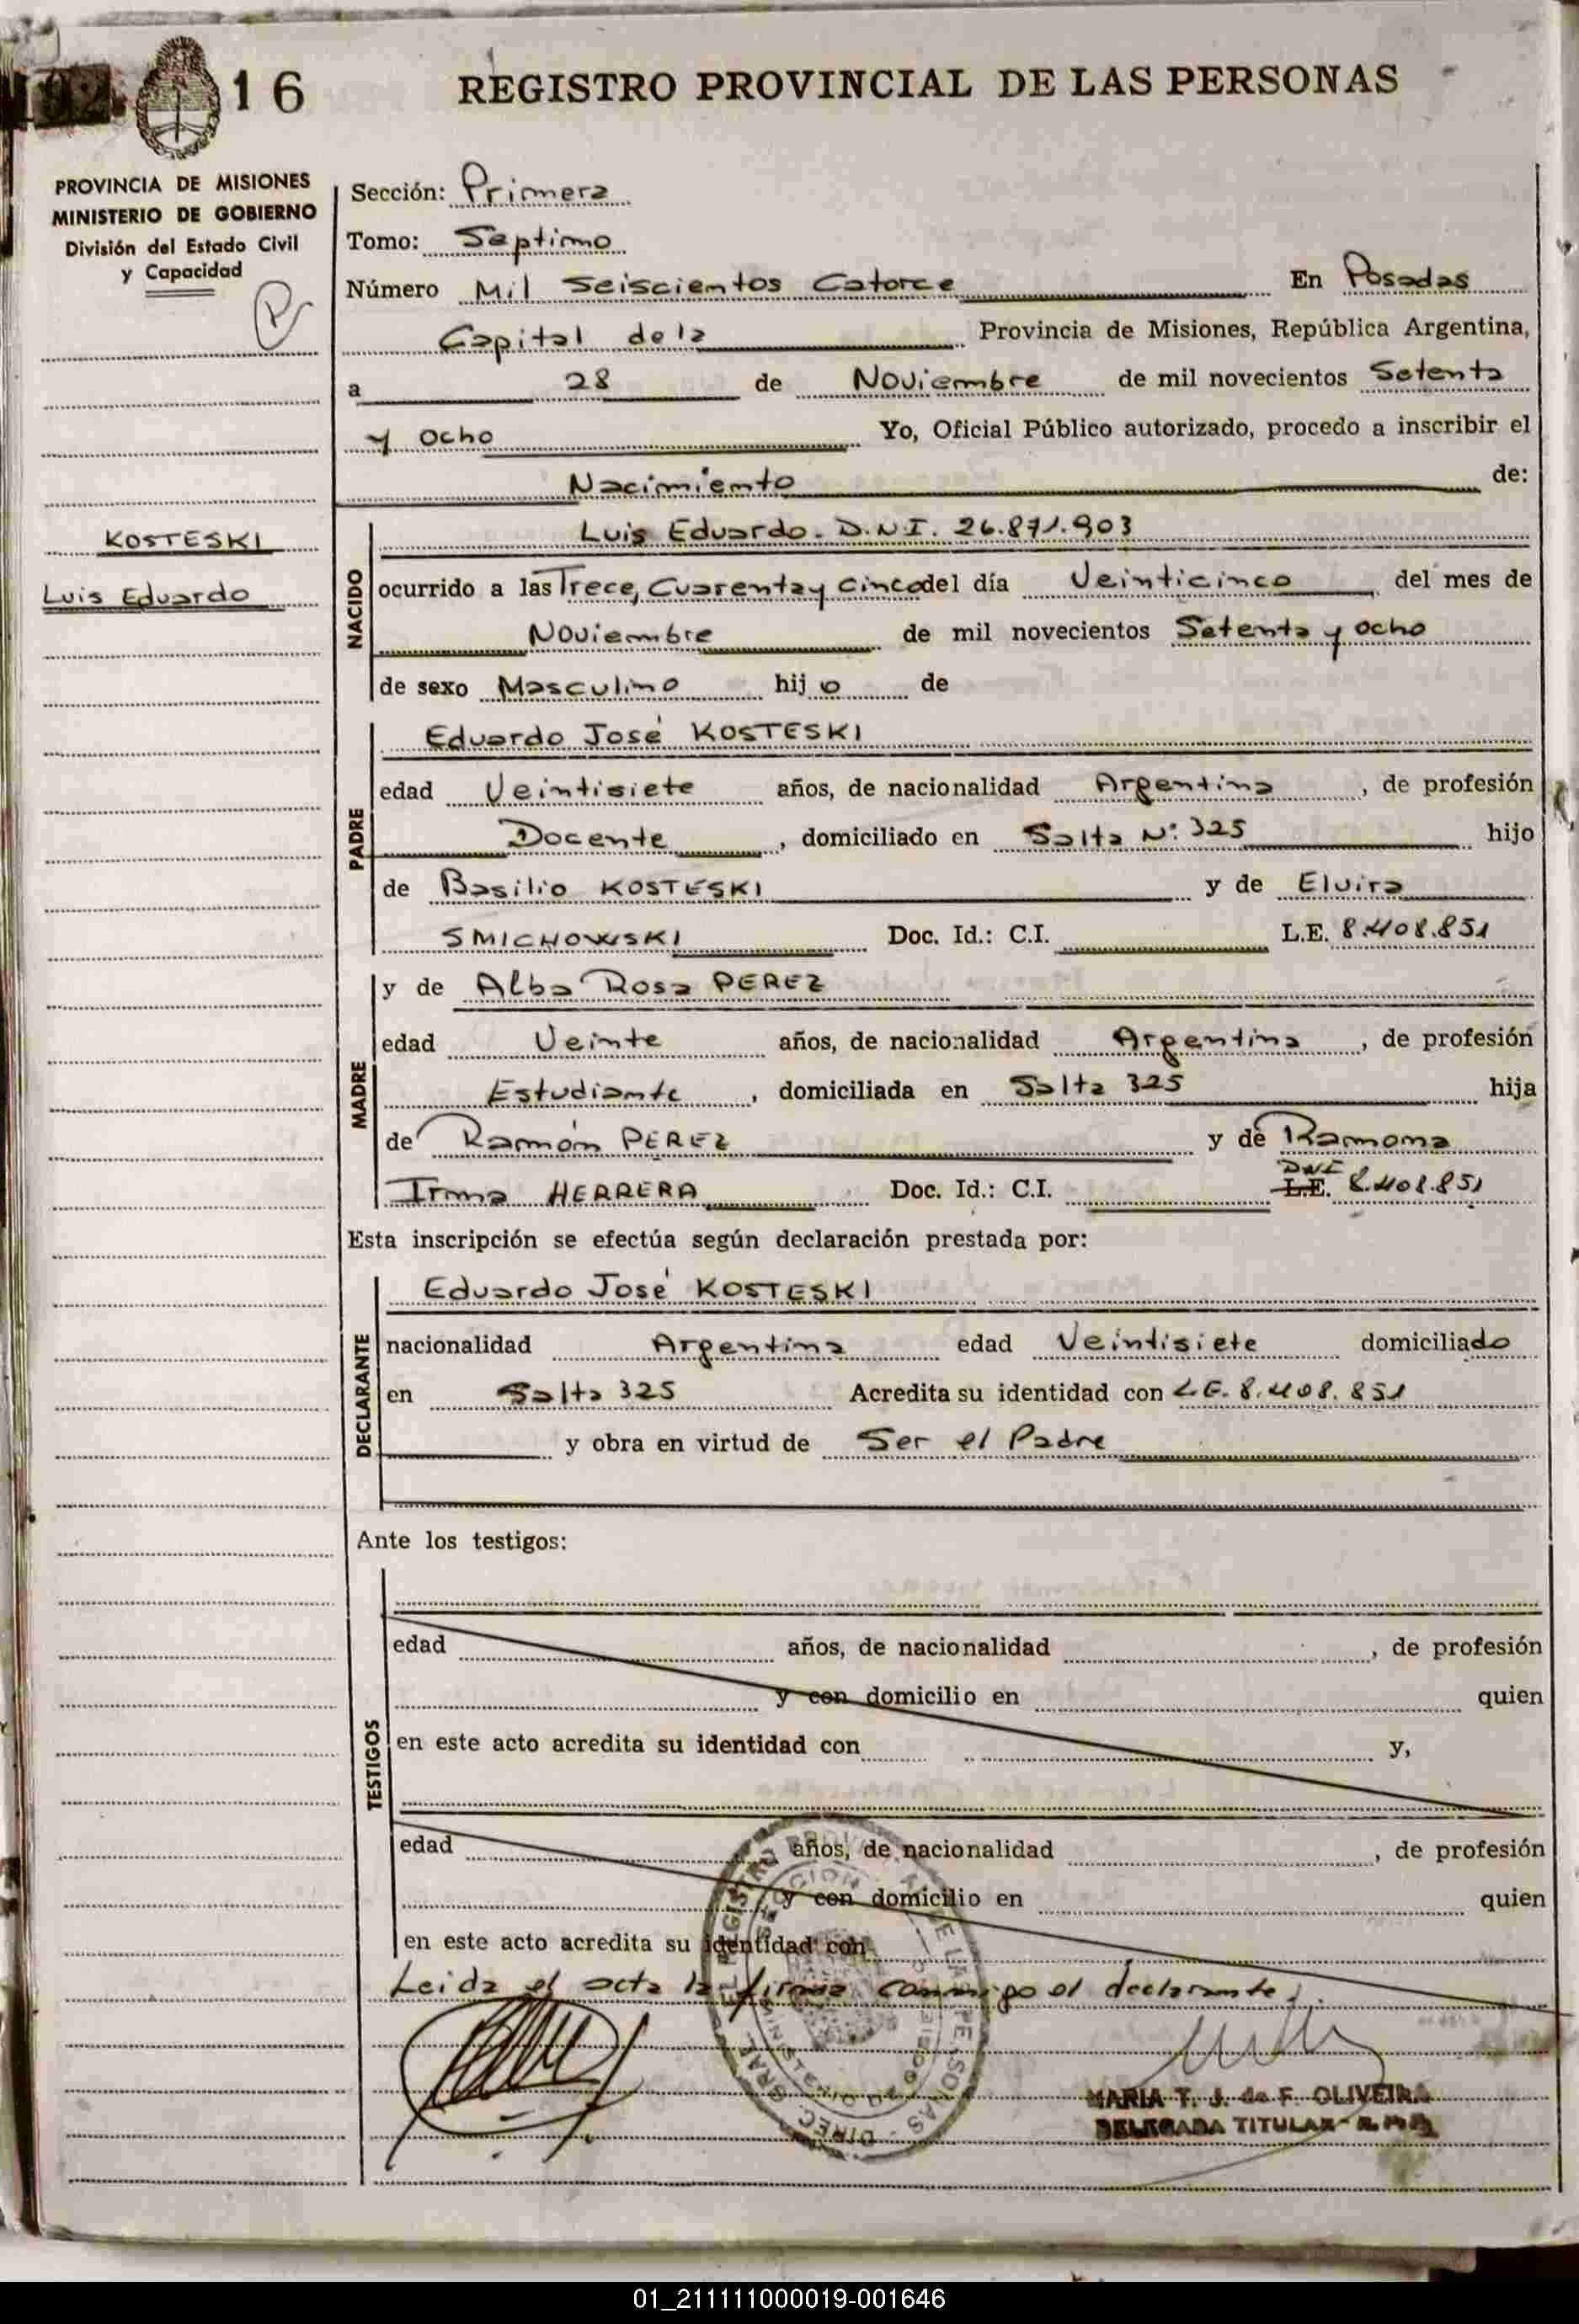 16 REGISTRO PROVINCIAL DE LAS PERSONAS
PROVINCIA DE MISIONES
MINISTERIO DE GOBIERNO
División del Estado Civil
y Capacidad
KOSTESKI
Luis Eduardo
Sección: Primera
Tomo: Septimo
Número Mil Seiscientos Catorce En Posadas
Capital de la Provincia de Misiones, República Argentina,
a 28 de Noviembre de mil novecientos Setenta
y ocho Yo, Oficial Público autorizado, procedo a inscribir el
Nacimiento de:
NACIDO
Luis Eduardo. D.N.I. 26.871.903
ocurrido a las Trece, Cuarenta y Cinco del día Veinticinco del mes de
Noviembre de mil novecientos Setenta y ocho
de sexo Masculino hijo de
PADRE
Eduardo José KOSTESKI
edad Veintisiete años, de nacionalidad Argentina, de profesión
Docente, domiciliado en Salta Nº: 325 hijo
de Basilio KOSTESKI y de Elvira
SMICHOWSKI Doc. Id.: C.I. L.E. 8.408.851
MADRE
y de Alba Rosa PEREZ
edad Veinte años, de nacionalidad Argentina, de profesión
Estudiante, domiciliada en Salta 325 hija
de Ramón PEREZ y de Ramona
DNI
Irma HERRERA Doc. Id.: C.I. L.E. 8.408.851
Esta inscripción se efectúa según declaración prestada por:
DECLARANTE
Eduardo José KOSTESKI
nacionalidad Argentina edad Veintisiete domiciliado
en Salta 325 Acredita su identidad con L.E. 8.408.851
y obra en virtud de Ser el Padre
Ante los testigos:
TESTIGOS
edad años, de nacionalidad , de profesión
y con domicilio en quien
en este acto acredita su identidad con y,
edad años, de nacionalidad , de profesión
y con domicilio en quien
en este acto acredita su identidad con
Leida el acta la firma conmigo el declarante.
MARIA T. J. de F. OLIVEIRA
DELEGADA TITULAR
01_211111000019-001646